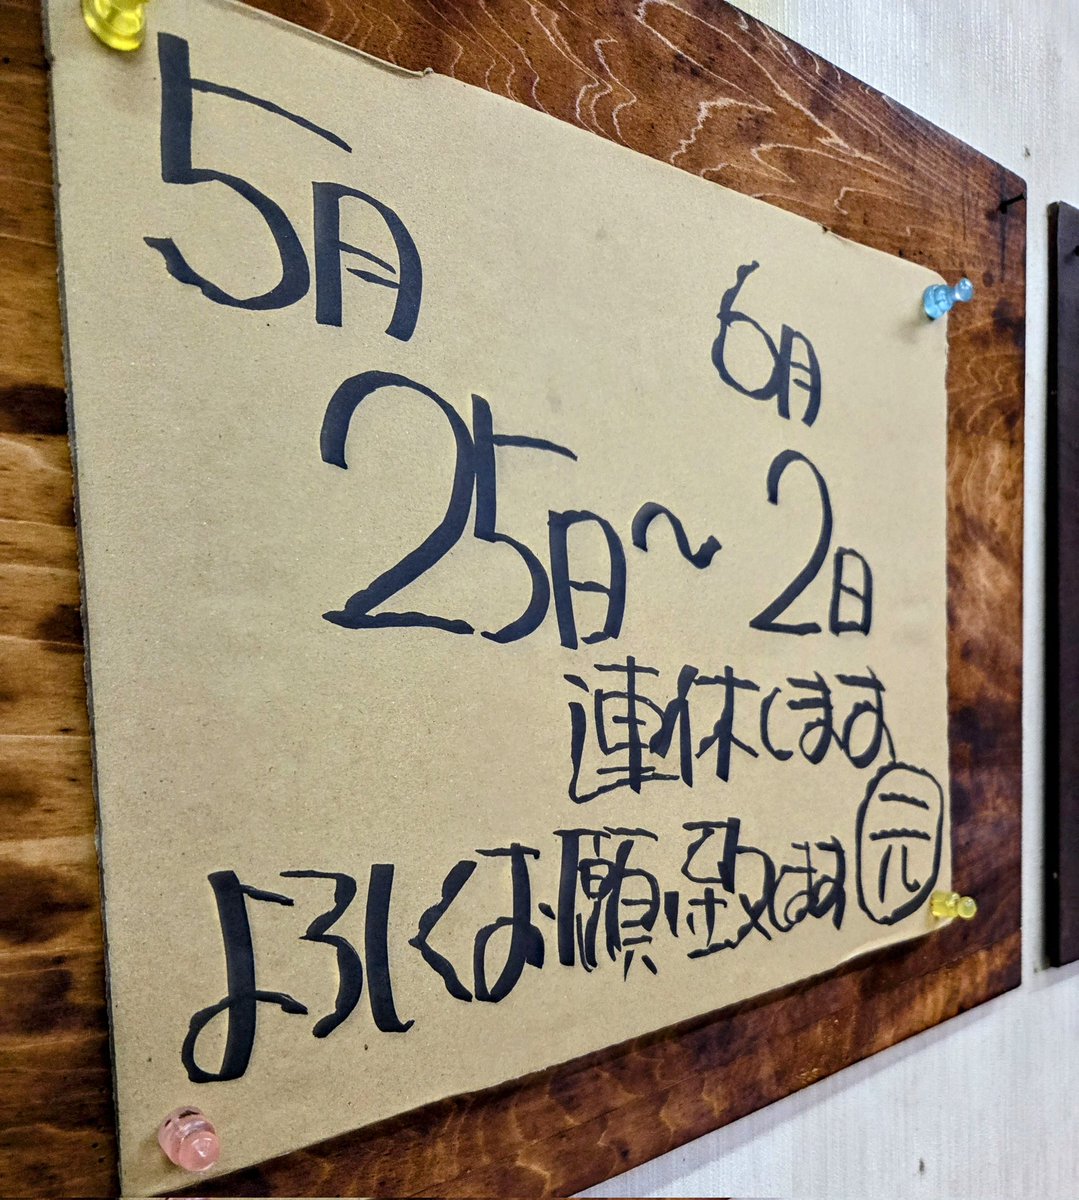 5月
25日～
6月
2日
連休します
よろしくお願い致します
元